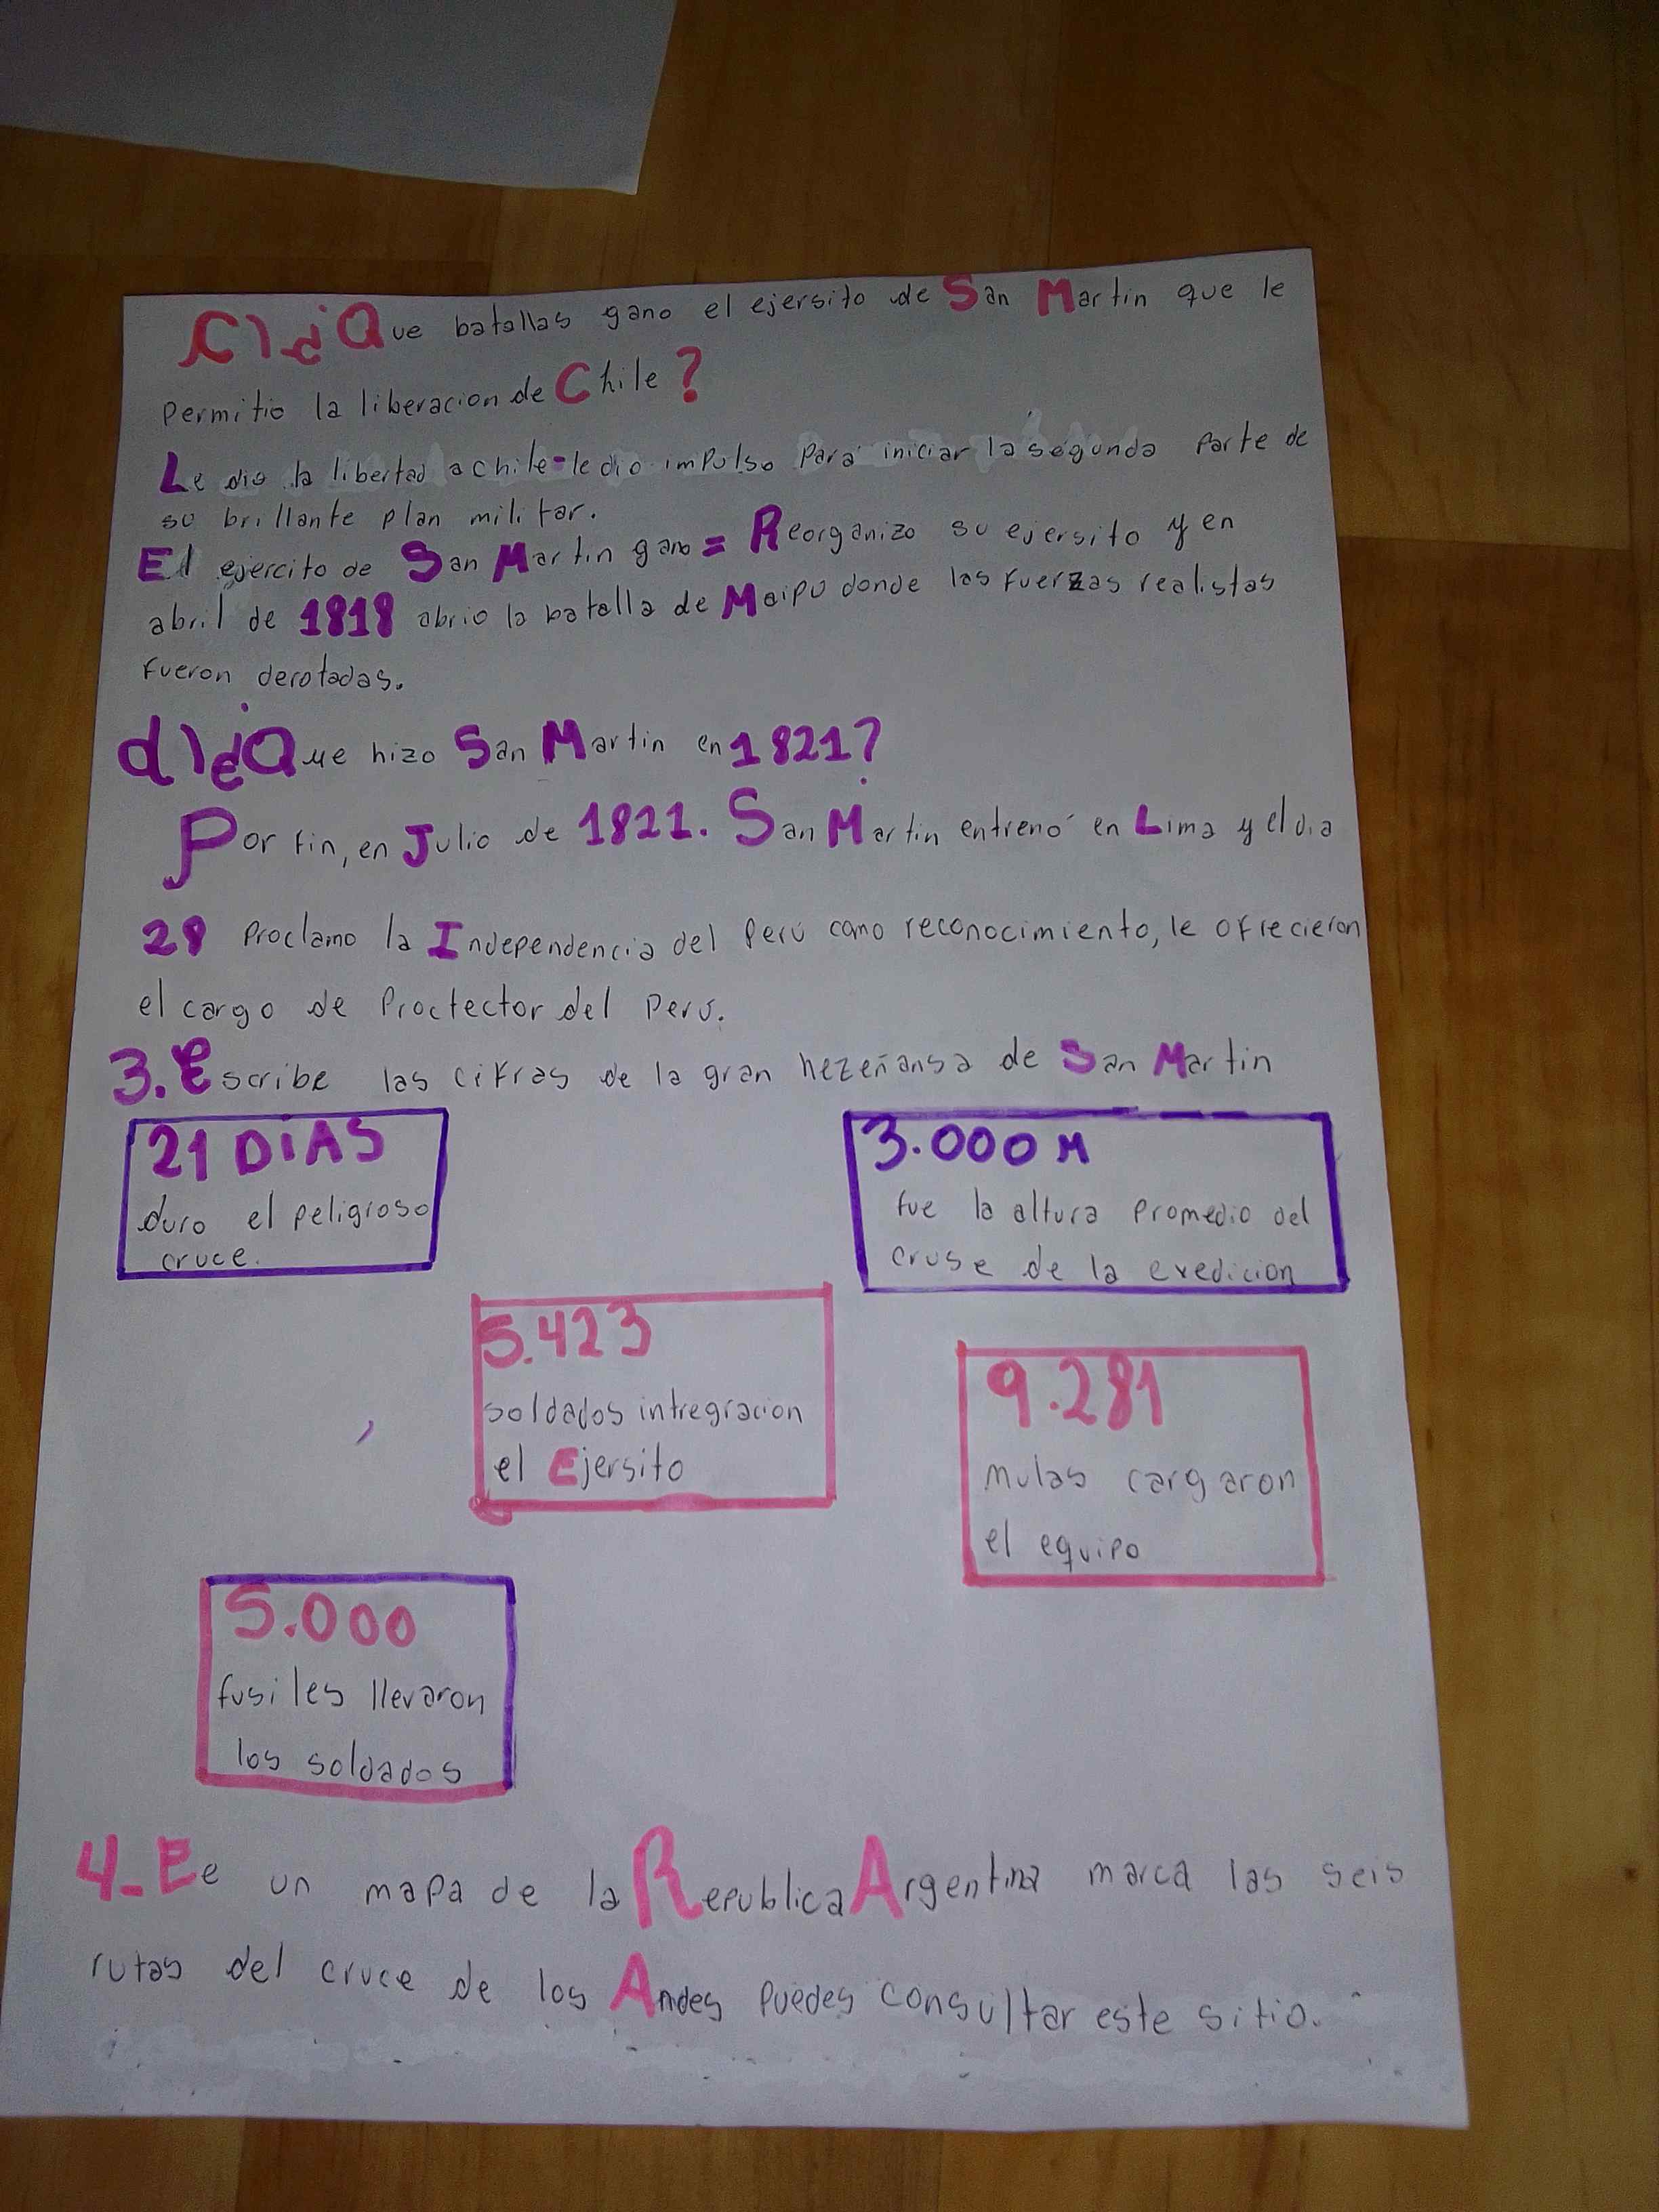 C) ¿Que batallas gano el ejersito de San Martin que le
permitio la liberacion de Chile?
Le dio la libertad a chile-le dio impulso para iniciar la segunda parte de
su brillante plan militar.
El ejercito de San Martin gano = Reorganizo su ejersito y en
abril de 1818 abrio la batalla de Maipu donde las fuerzas realistas
fueron derotadas.
d) ¿Que hizo San Martin en 1821?
Por fin, en Julio de 1821. San Martin entrenó en Lima y el dia
28 Proclamo la Independencia del Perú como reconocimiento, le ofrecieron
el cargo de Proctector del Peru.
3. Escribe las cifras de la gran hezeñansa de San Martin
21 DIAS
duro el peligroso
cruce.
3.000 M
fue la altura promedio del
cruse de la exedicion
5.423
soldados intregracion
el Ejersito
9.281
mulas cargaron
el equipo
5.000
fusiles llevaron
los soldados
4- Ee un mapa de la Republica Argentina marca las seis
rutas del cruce de los Andes puedes consultar este sitio.